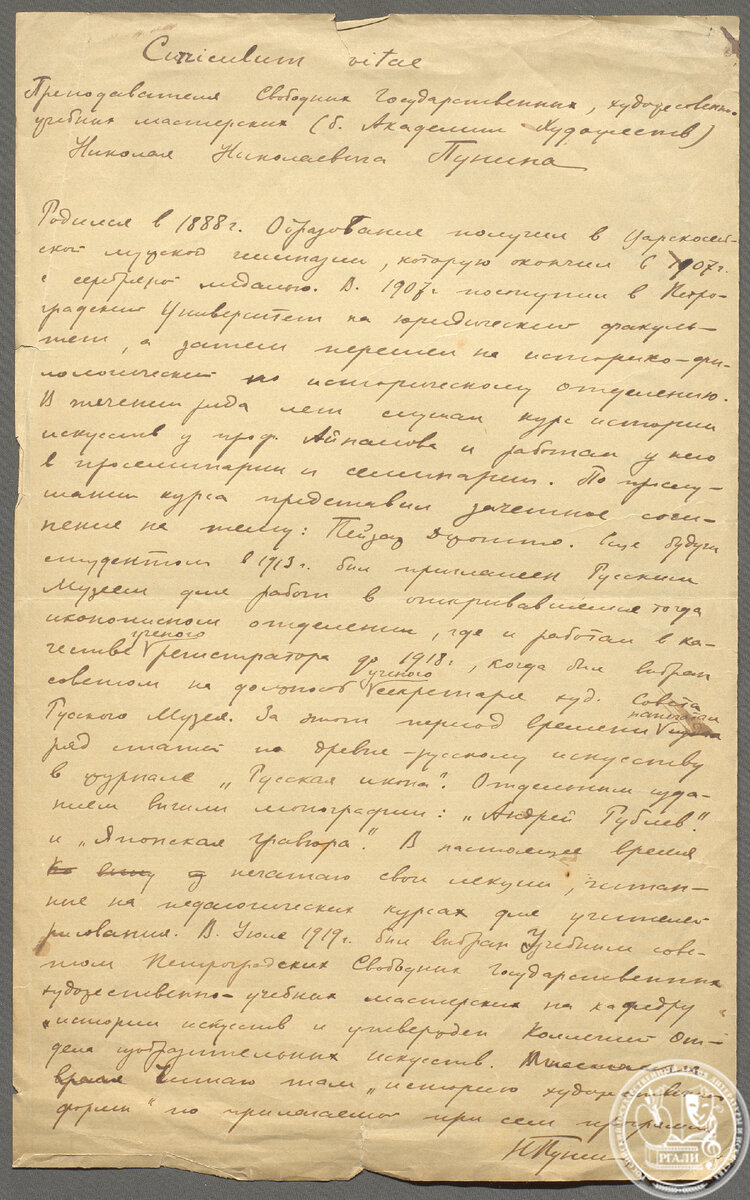 Curriculum vitae
Преподавателя Свободных Государственных, художественно-
учебных мастерских (б. Академии Художеств)
Николая Николаевича Пунина
Родился в 1888 г. Образование получил в Царскосель-
ской мужской гимназии, которую окончил в 1907 г.
с серебряной медалью. В 1907 г поступил в Петро-
градский Университет на юридический факуль-
тет, а затем перешел на историко-фи-
лологический по историческому отделению.
В течении ряда лет слушал курс истории
искусств у проф. Айналова и работал у него
в просеминарии и семинарии. По прослу-
шании курса представил зачетное сочи-
нение на тему: Пейзаж Джотто. Еще будучи
студентом в 1913 г. был приглашен Русским
Музеем для работ в открывавшемся тогда
иконописном отделении, где и работал в ка-
честве ученого регистратора до 1918 г., когда был избран
советом на должность ученого секретаря худ. Совета
Русского Музея. За этот период времени напечатал
ряд статей по древне-русскому искусству
в журнале „Русская икона". Отдельным изда-
нием вышли монографии: „Андрей Рублев"
и „Японская гравюра". В настоящее время
печатаю свои лекции, читан-
ные на педагогических курсах для учителей
рисования. В Июле 1919 г. был избран Учебным сове-
том Петроградских Свободных Государственных
художественно-учебных мастерских на кафедру
„истории искусств и утвержден Коллегией От-
дела изобразительных искусств.
время Читаю там „историю художественных
форм" по прилагаемой при сем программе
Н Пунин
РГАЛИ